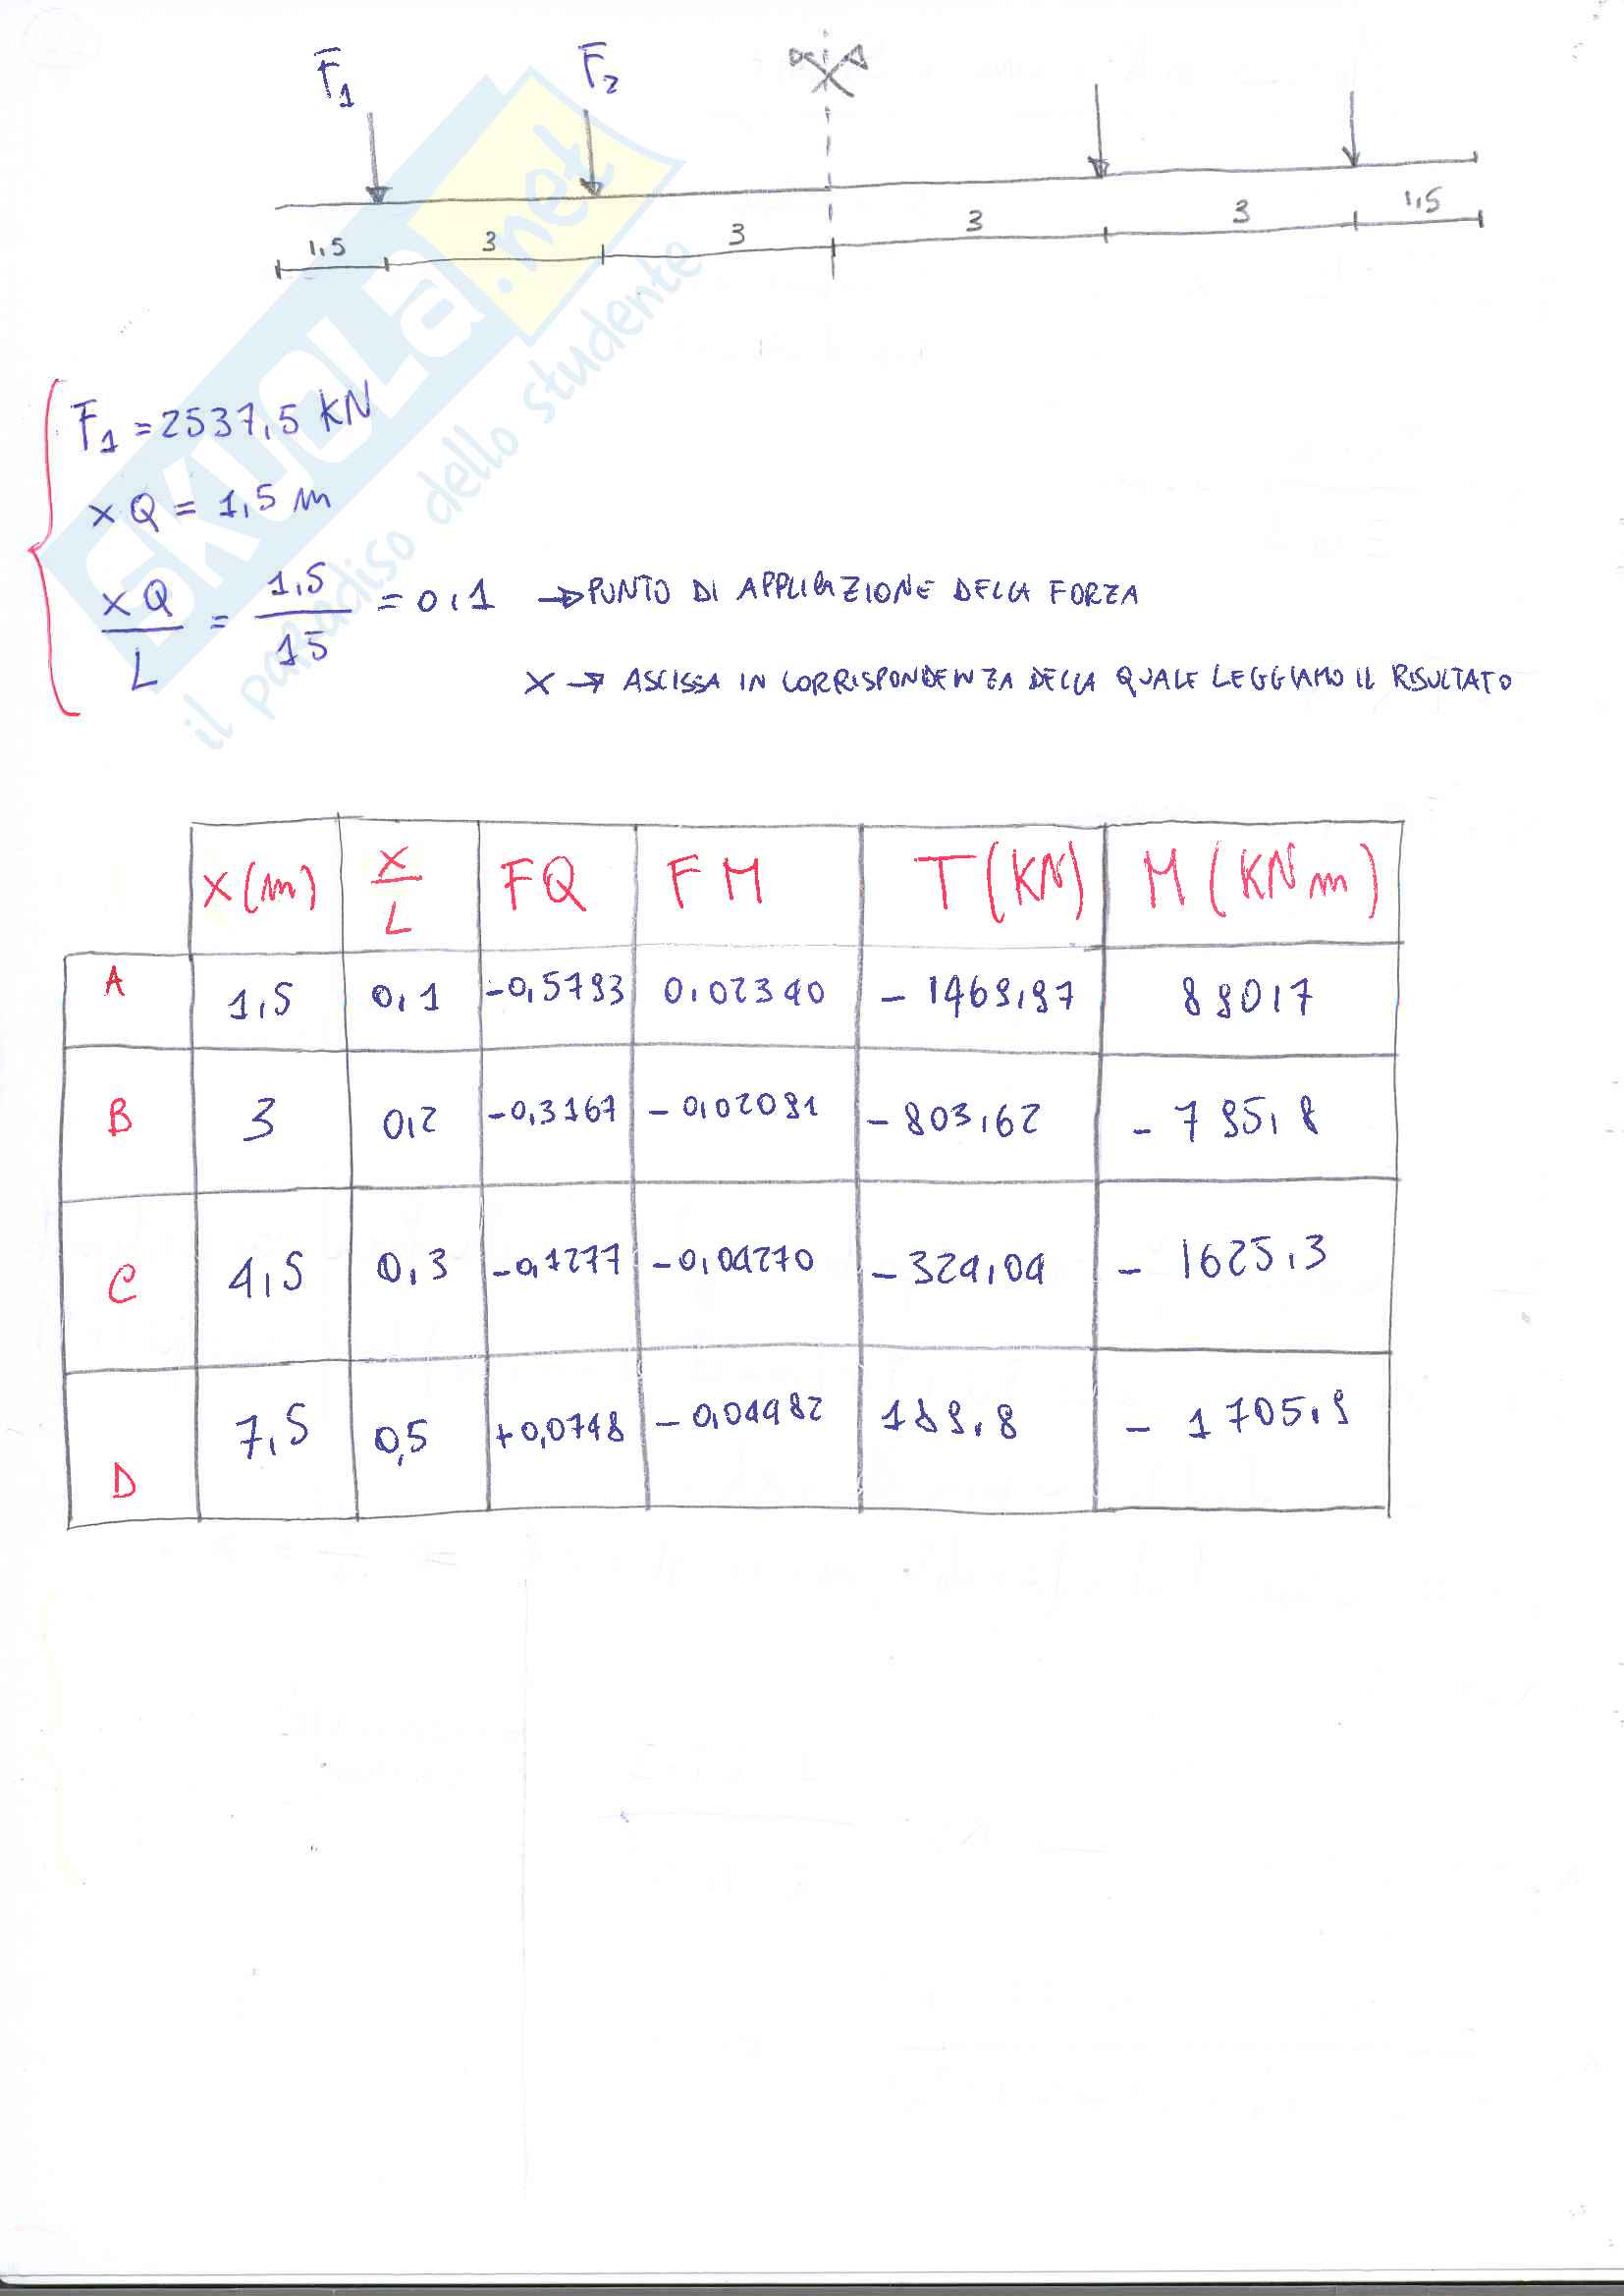 F1 F2
1,5 3 3 3 3 1,5
F1 = 2537,5 KN
xQ = 1,5 m
xQ/L = 1,5/15 = 0,1 → PUNTO DI APPLICAZIONE DELLA FORZA
X → ASCISSA IN CORRISPONDENZA DELLA QUALE LEGGIAMO IL RISULTATO
X(m) X/L FQ FM T(KN) M(KNm)
A 1,5 0,1 -0,5793 0,02340 -1469,97 890,7
B 3 0,2 -0,3167 -0,02091 -803,62 -795,8
C 4,5 0,3 -0,1277 -0,04270 -324,04 -1625,3
D 7,5 0,5 +0,0748 -0,04482 189,8 -1705,9
SKUOLA.net
il paradiso dello studente